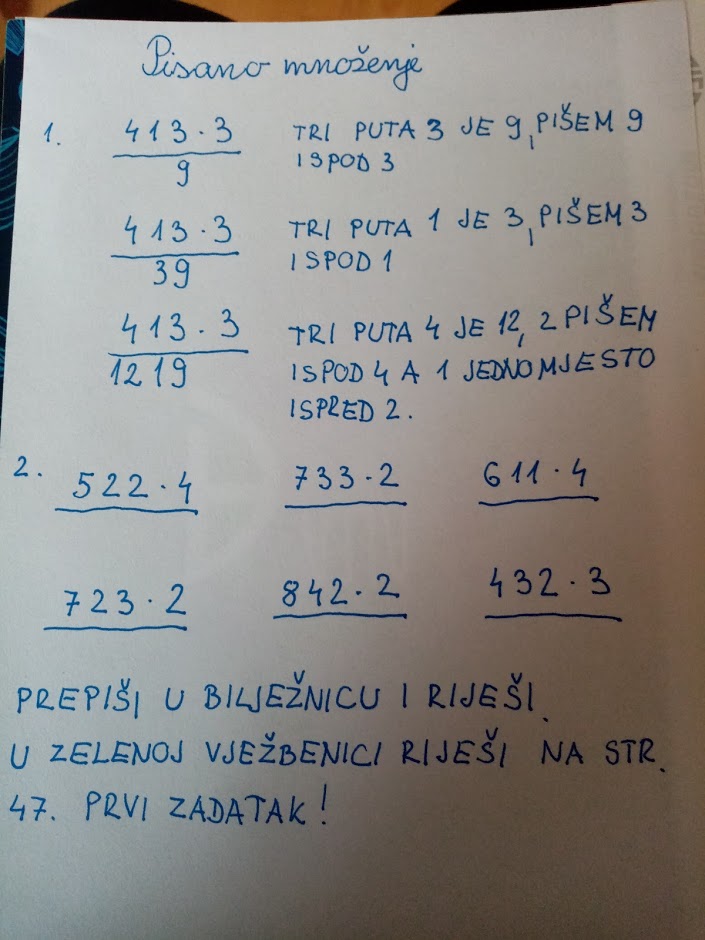 Pisano množenje
1. 413·3 TRI PUTA 3 JE 9, PIŠEM 9
9 ISPOD 3
413·3 TRI PUTA 1 JE 3, PIŠEM 3
39 ISPOD 1
413·3 TRI PUTA 4 JE 12, 2 PIŠEM
1219 ISPOD 4 A 1 JEDNO MJESTO
ISPRED 2.
2. 522·4 733·2 611·4
723·2 842·2 432·3
PREPIŠI U BILJEŽNICU I RIJEŠI.
U ZELENOJ VJEŽBENICI RIJEŠI NA STR.
47. PRVI ZADATAK!